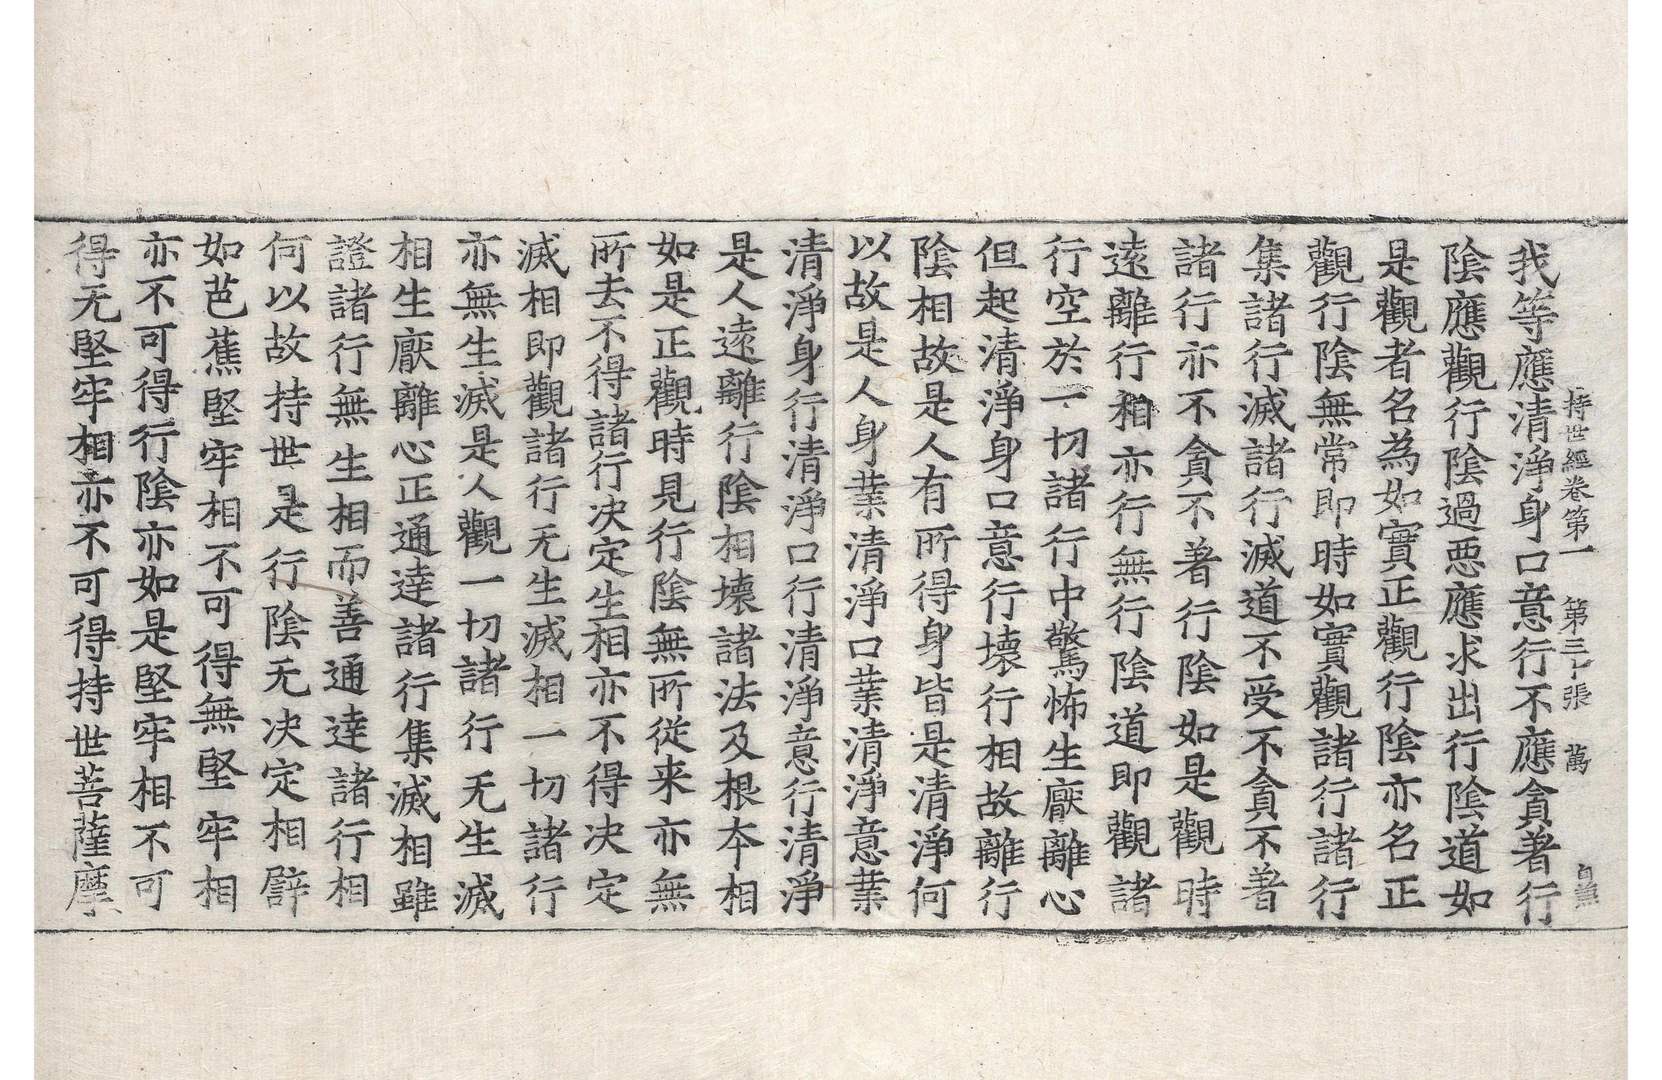 持世經卷第一 第三十張 萬
我等應清淨身口意行不應貪著行
陰應觀行陰過惡應求出行陰道如
是觀者名為如實正觀行陰亦名正
觀行陰無常即時如實觀諸行諸行
集諸行滅諸行滅道不受不貪不著
諸行亦不貪不著行陰如是觀時
遠離行相亦行無行陰道即觀諸
行空於一切諸行中驚怖生厭離心
但起清淨身口意行壞行相故離行
陰相故是人有所得身皆是清淨何
以故是人身業清淨口業清淨意業
清淨身行清淨口行清淨意行清淨
是人遠離行陰相壞諸法及根本相
如是正觀時見行陰無所從来亦無
所去不得諸行决定生相亦不得决定
滅相即觀諸行无生滅相一切諸行
亦無生滅是人觀一切諸行无生滅
相生厭離心正通達諸行集滅相雖
證諸行無生相而善通達諸行相
何以故持世是行陰无决定相譬
如芭蕉堅牢相不可得無堅牢相
亦不可得行陰亦如是堅牢相不可
得无堅牢相亦不可得持世菩薩摩